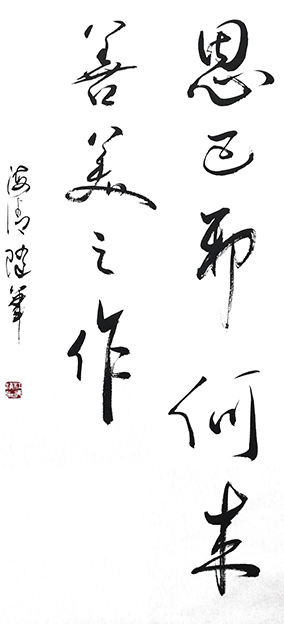 思己邪何来
善美之作
海清随笔